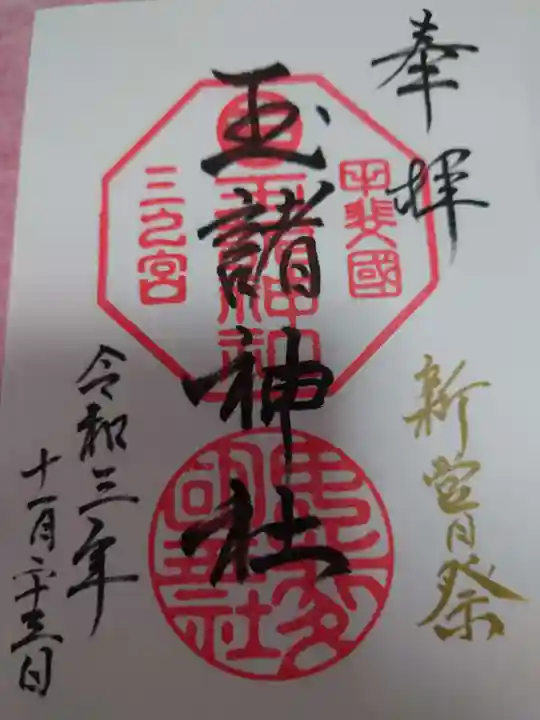 奉拝
新嘗祭
甲斐國
玉諸神社
三之宮
玉諸神社
令和三年
十一月二十三日